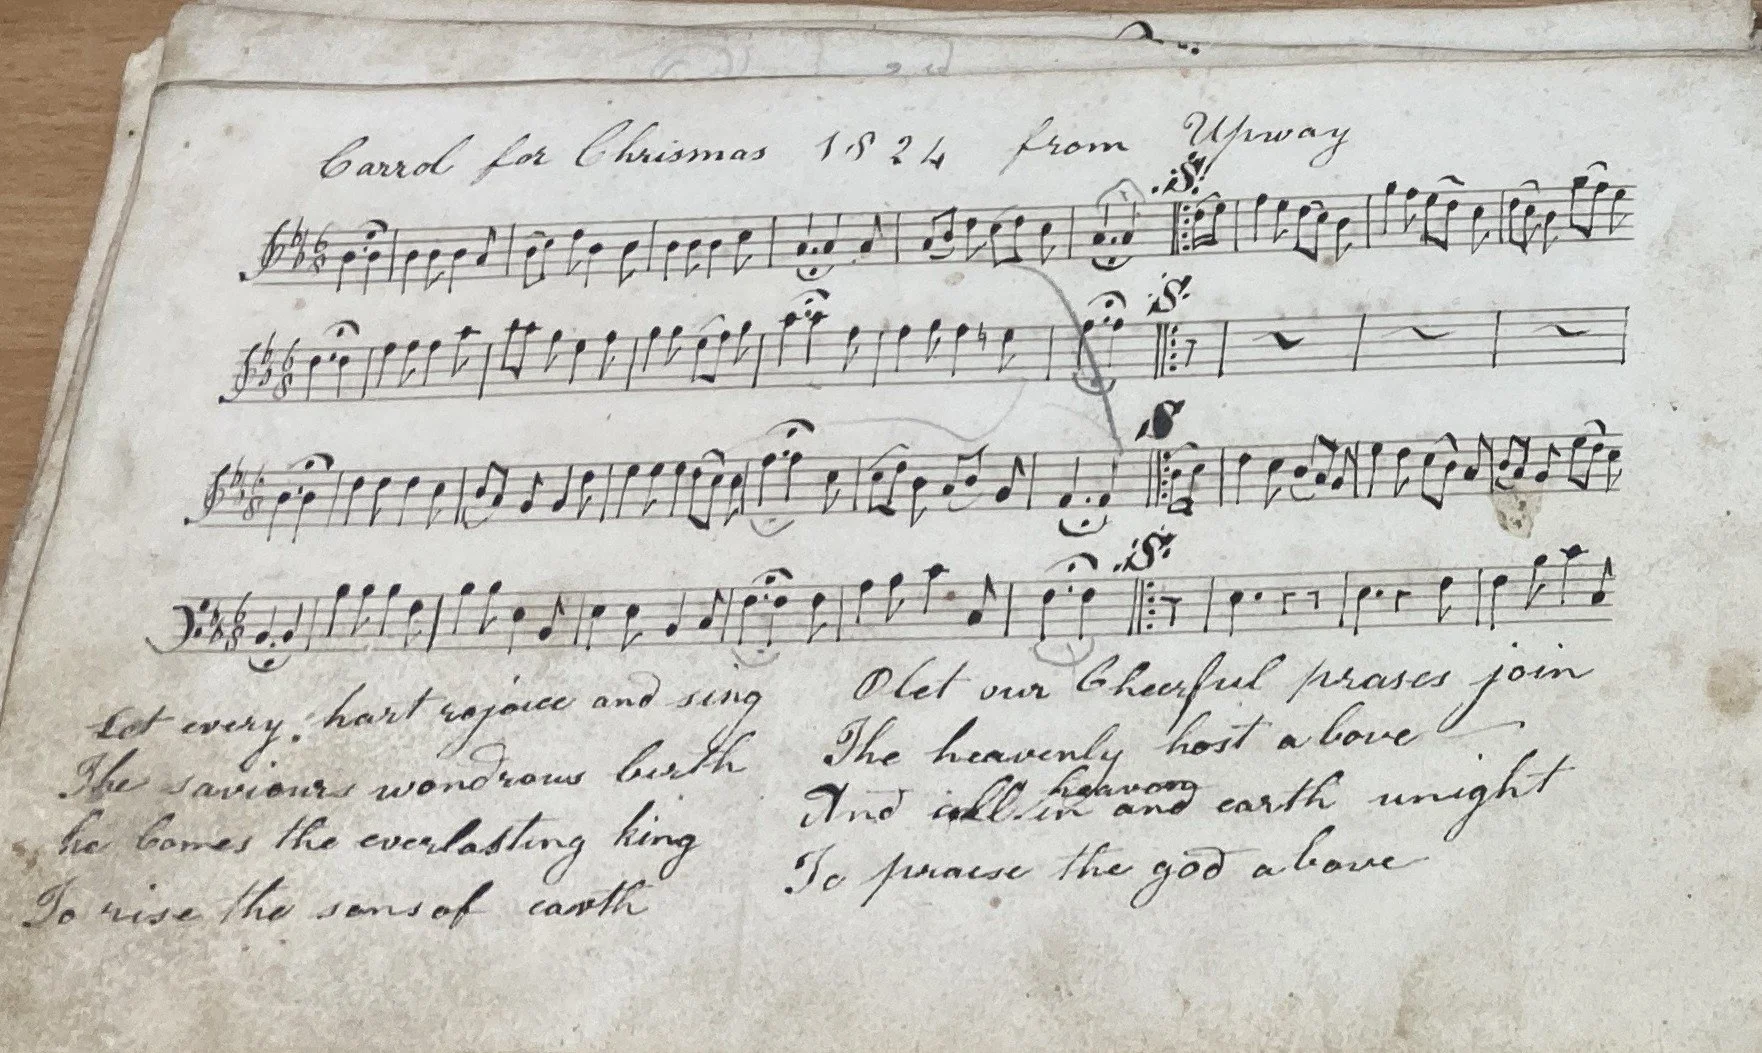 Carrol for Chrismas 1824 from Upway
Let every hart rejoice and sing
The saviours wondrous birth
he Comes the everlasting king
To rise the sons of earth
O let our Cheerful prases join
The heavenly host above
And all in heavens and earth unight
To praise the god above